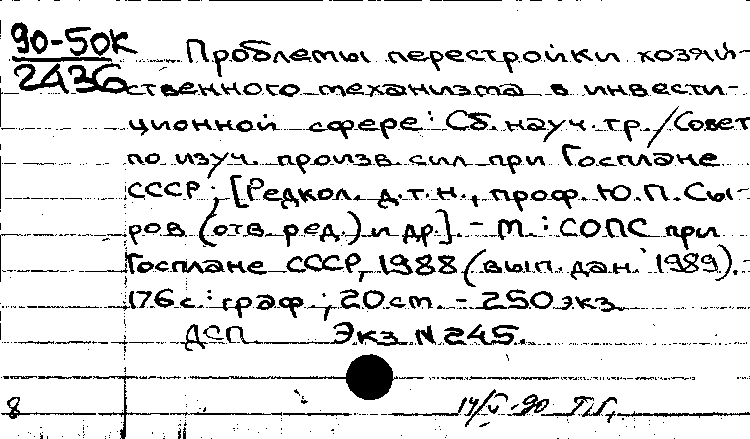 90-50К
2436
Проблемы перестройки хозяй-
ственного механизма в инвести-
ционной сфере: Сб. науч. тр. / Совет
по изуч. произв. сил при Госплане
СССР; [Редкол. д.т.н., проф. Ю.П. Сы-
ров (отв. ред.) и др.]. - М.: СОПС при
Госплане СССР, 1988 (вып. дан. 1989). -
176 с.: граф.; 20 cm. - 250 экз.
ДСП. Экз N 245.
8
14/V-90 П.Г.